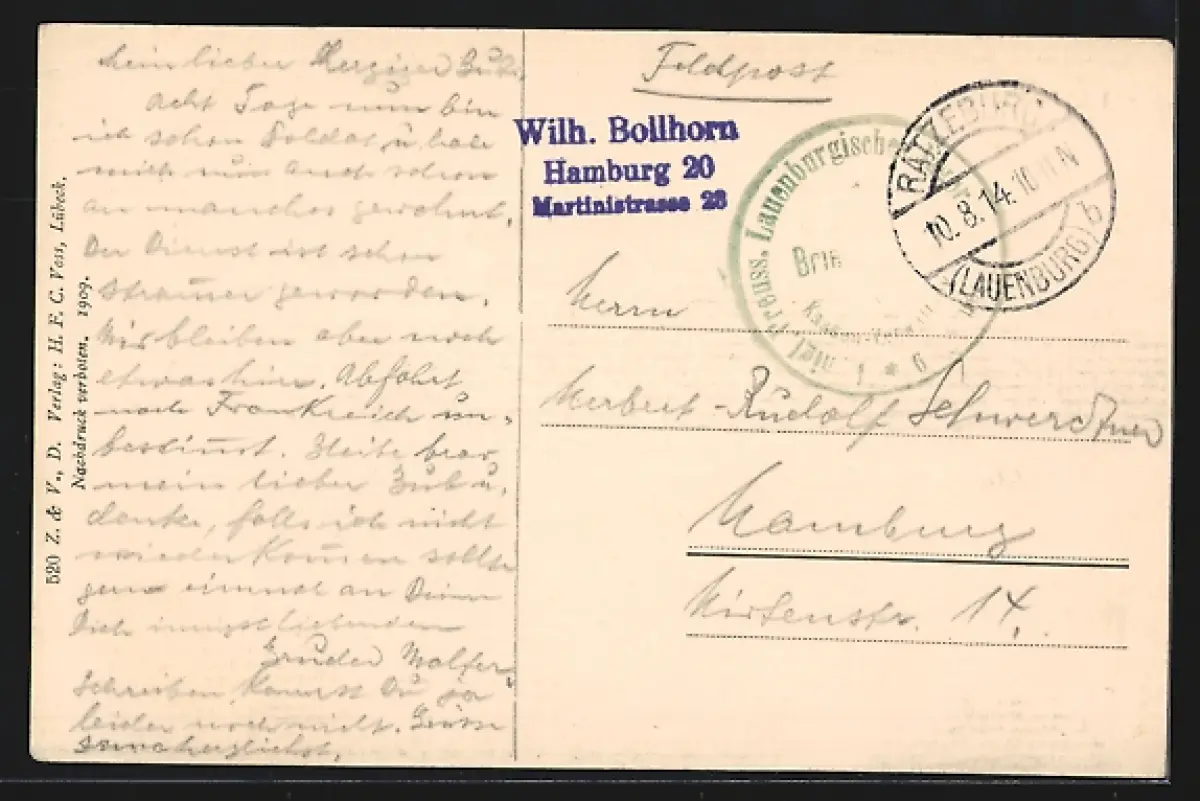 Mein lieber Herziger Bub,
acht Tage nun bin
ich schon Soldat u. habe
mich nun auch schon
an manches gewöhnt.
Der Dienst ist schon
strammer geworden.
Wir bleiben aber noch
etwas hier. Abfahrt
nach Frankreich un-
bestimmt. Bleibe brav
mein lieber Bub u.
denke, falls ich nicht
wiederkommen sollte
gern einmal an Deinen
Dich innigst liebenden
Bruder
Schreiben kannst Du ja
leider noch nicht. Grüsse
herzlichst.
520 Z. & V., D. Verlag: H. F. C. Voss, Lübeck.
Nachdruck verboten. 1909.
Feldpost
Wilh. Bollhorn
Hamburg 20
Martinistrasse 28
Preuss. Lauenburgisches
Brie
6
RATZEBURG
10.8.14. 10-11 N
(LAUENBURG) b
Herrn
Herbert-Rudolf Schwerdtner
Hamburg
Kirtenstr. 14.